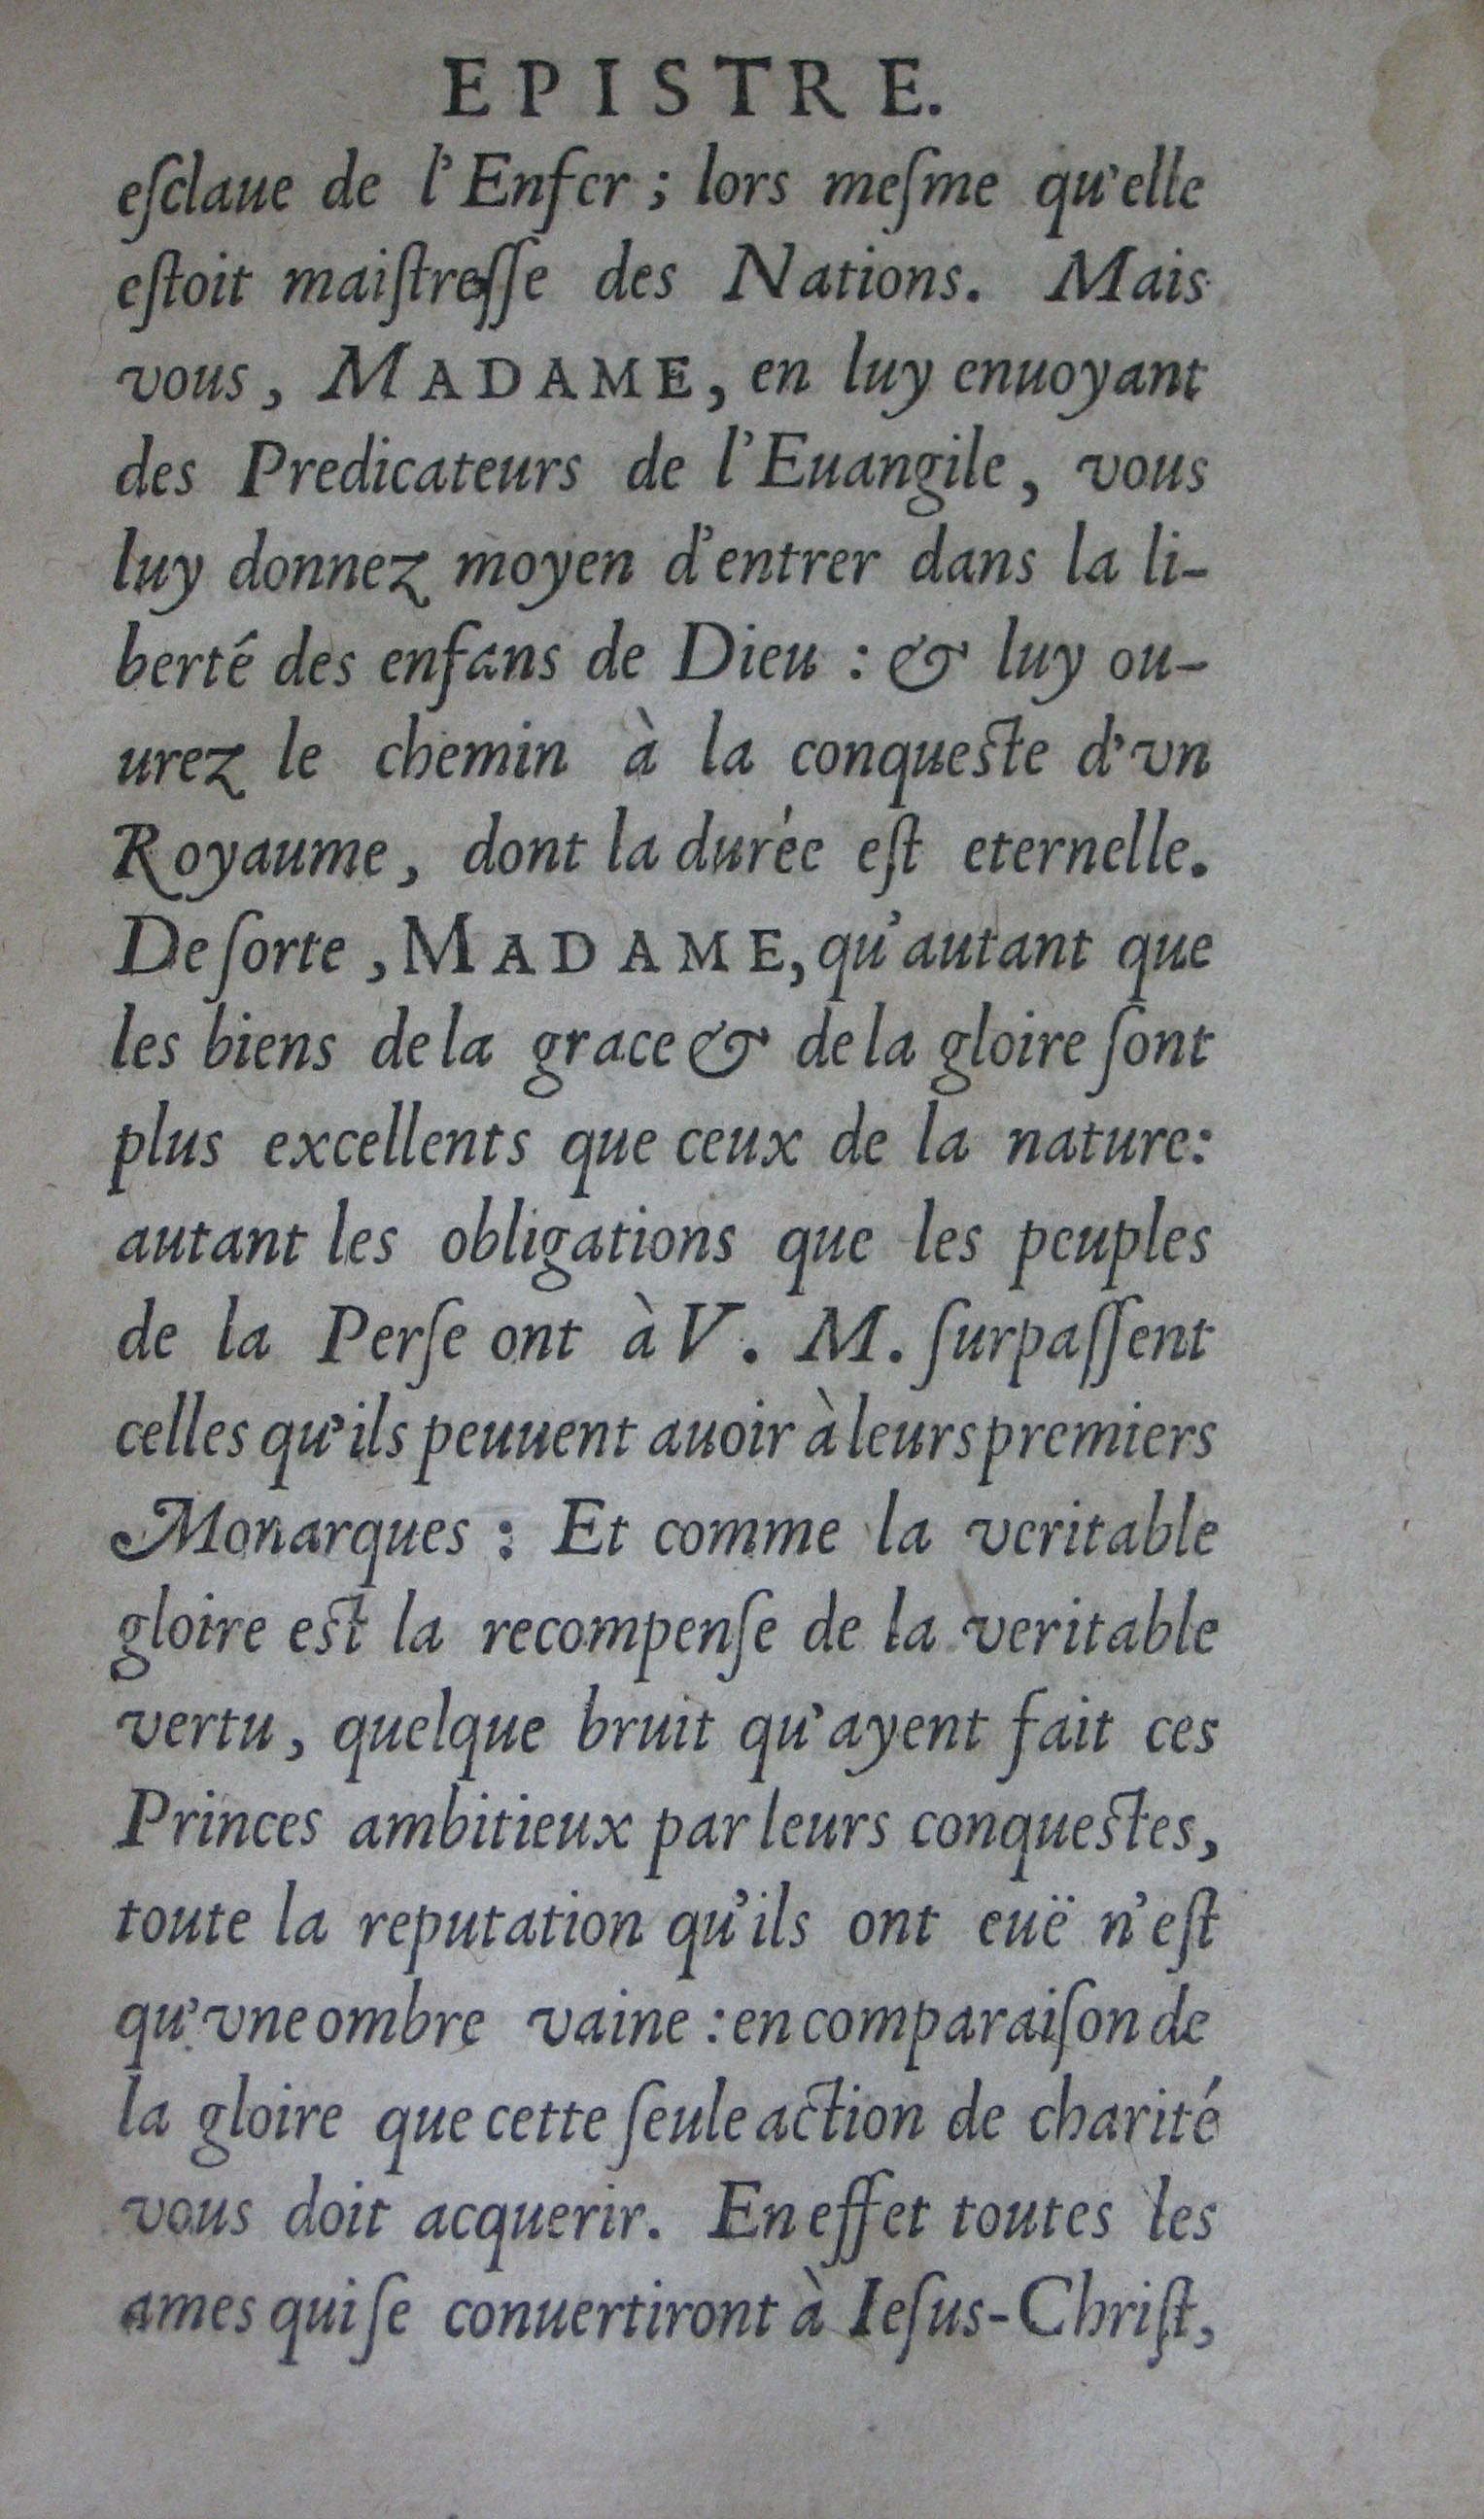 EPISTRE.
eſclaue de l'Enfer ; lors meſme qu'elle
eſtoit maiſtreſſe des Nations. Mais
vous, MADAME, en luy enuoyant
des Predicateurs de l'Euangile, vous
luy donnez moyen d'entrer dans la li-
berté des enfans de Dieu : & luy ou-
urez le chemin à la conqueſte d'vn
Royaume, dont la durée eſt eternelle.
De ſorte, MADAME, qu'autant que
les biens de la grace & de la gloire ſont
plus excellents que ceux de la nature:
autant les obligations que les peuples
de la Perſe ont à V. M. ſurpaſſent
celles qu'ils peuuent auoir à leurs premiers
Monarques : Et comme la veritable
gloire eſt la recompenſe de la veritable
vertu, quelque bruit qu'ayent fait ces
Princes ambitieux par leurs conqueſtes,
toute la reputation qu'ils ont euë n'eſt
qu'vne ombre vaine : en comparaiſon de
la gloire que cette ſeule action de charité
vous doit acquerir. En effet toutes les
ames qui ſe conuertiront à Ieſus-Chriſt,